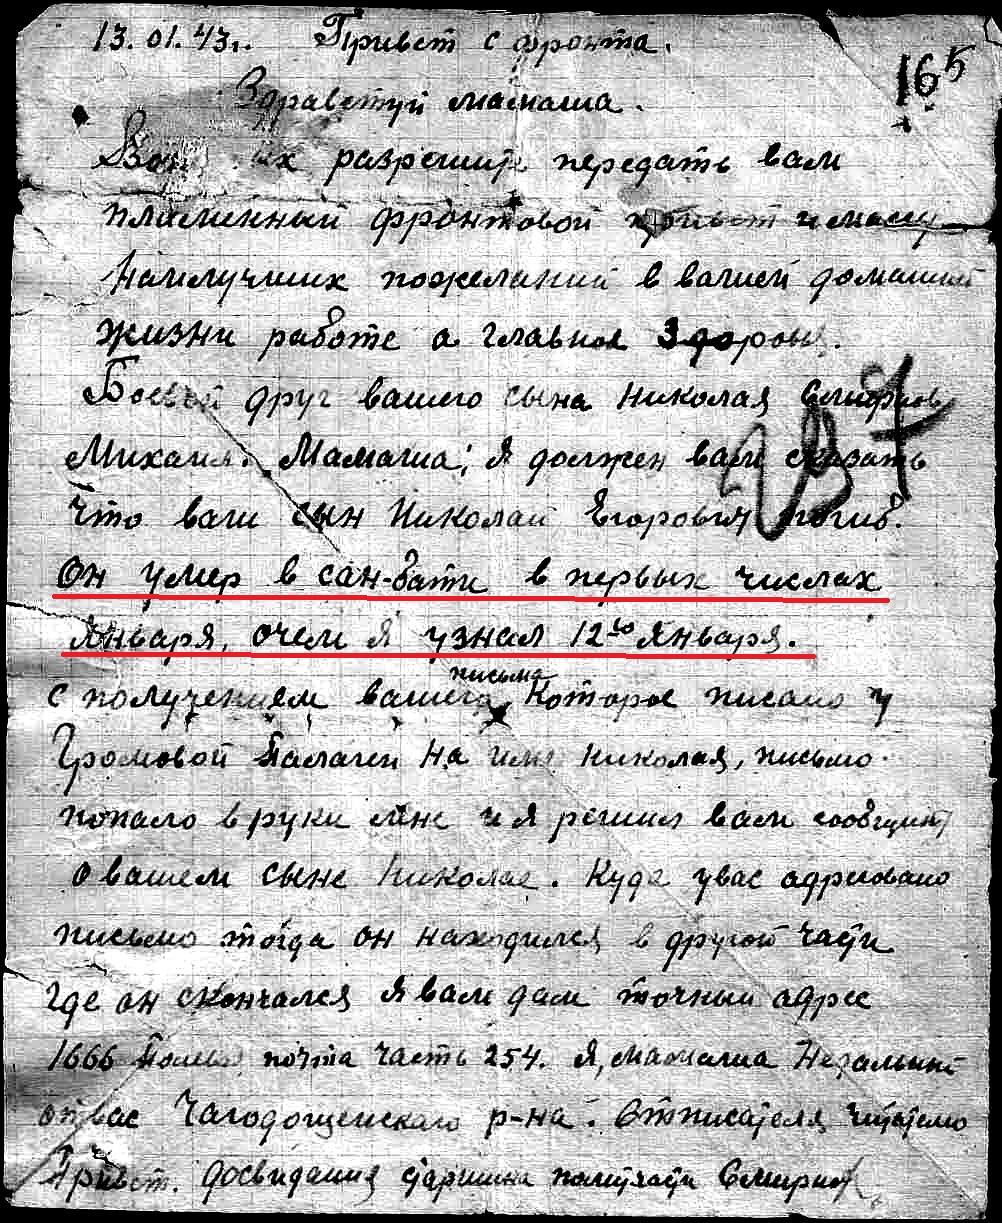 13.01.43г. Привет с фронта.
165
Здравствуй мамаша.
разрешите передать вам
пламенный фронтовой привет и массу
наилучших пожеланий в вашей домашней
жизни работе а главное здоровья.
Боевой друг вашего сына Николая Смирнов
Михаил. Мамаша, я должен вам сказать
237
что ваш сын Николай Егорович погиб.
Он умер в сан-бате в первых числах
Января, очем я узнал 12го Января.
с получением вашего письма Которое писано у
Громовой на имя Николая, письмо
попало в руки мне и я решил вам сообщить
о вашем сыне Николае. Куда увас адресовано
письмо тогда он находился в другой части
Где он скончался Я вам дам точный адрес
1666 почта часть 254. Я, мамаша Недальний
от вас Чагодощенскаго р-на. От писателя читателю
Привет. досвидания старшина Смирнов